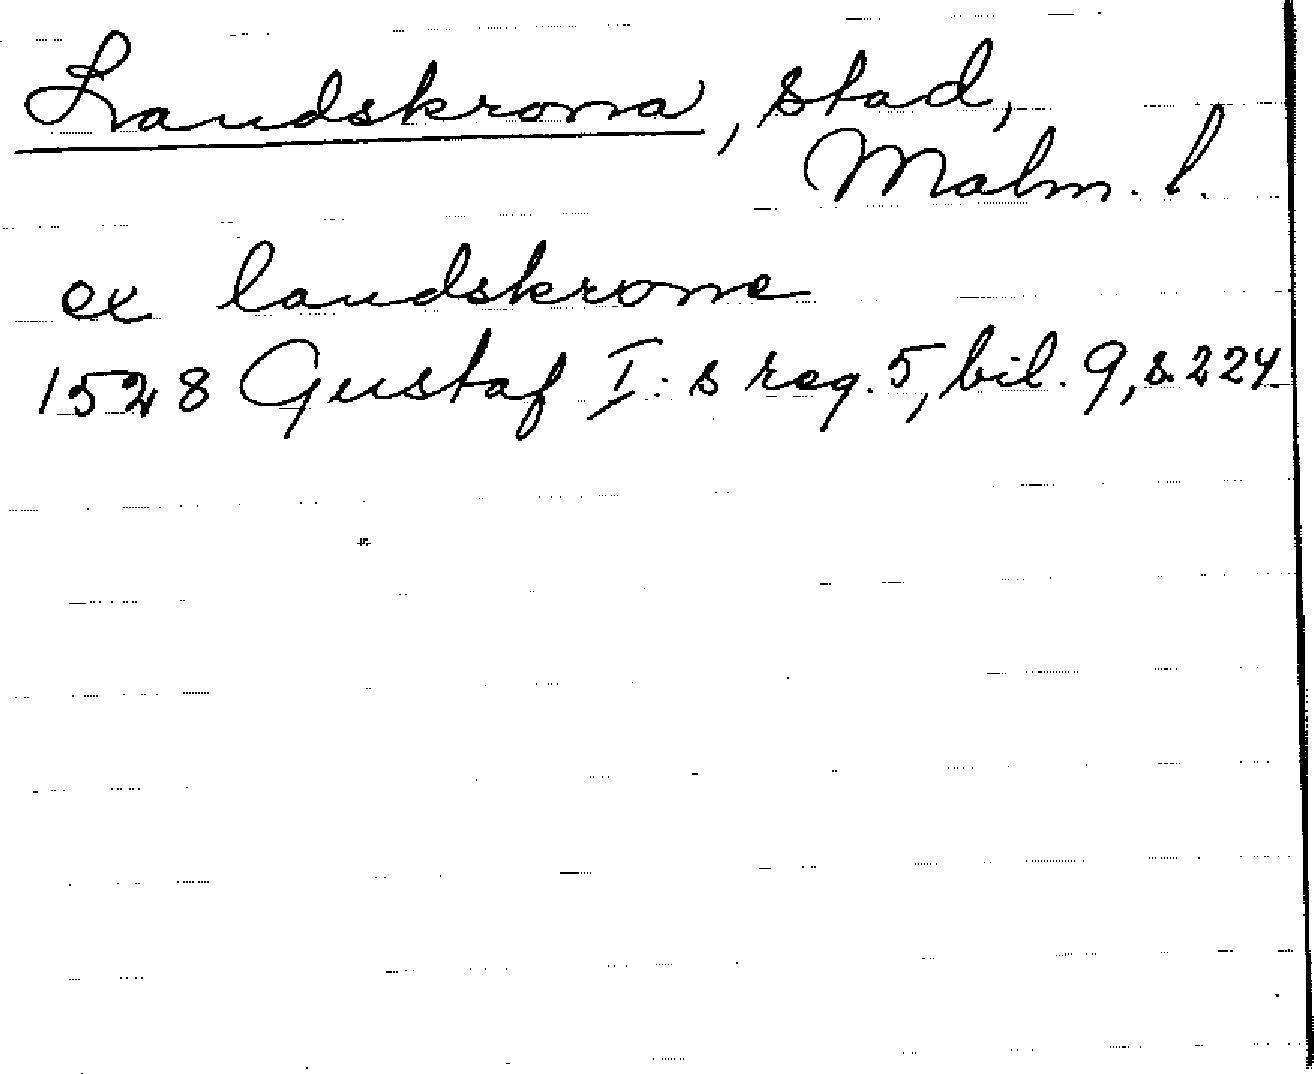 Landskrona, stad,
Malm. l.
ex landskrone
1528 Gustaf I:s reg. 5, bil. 9, s. 224